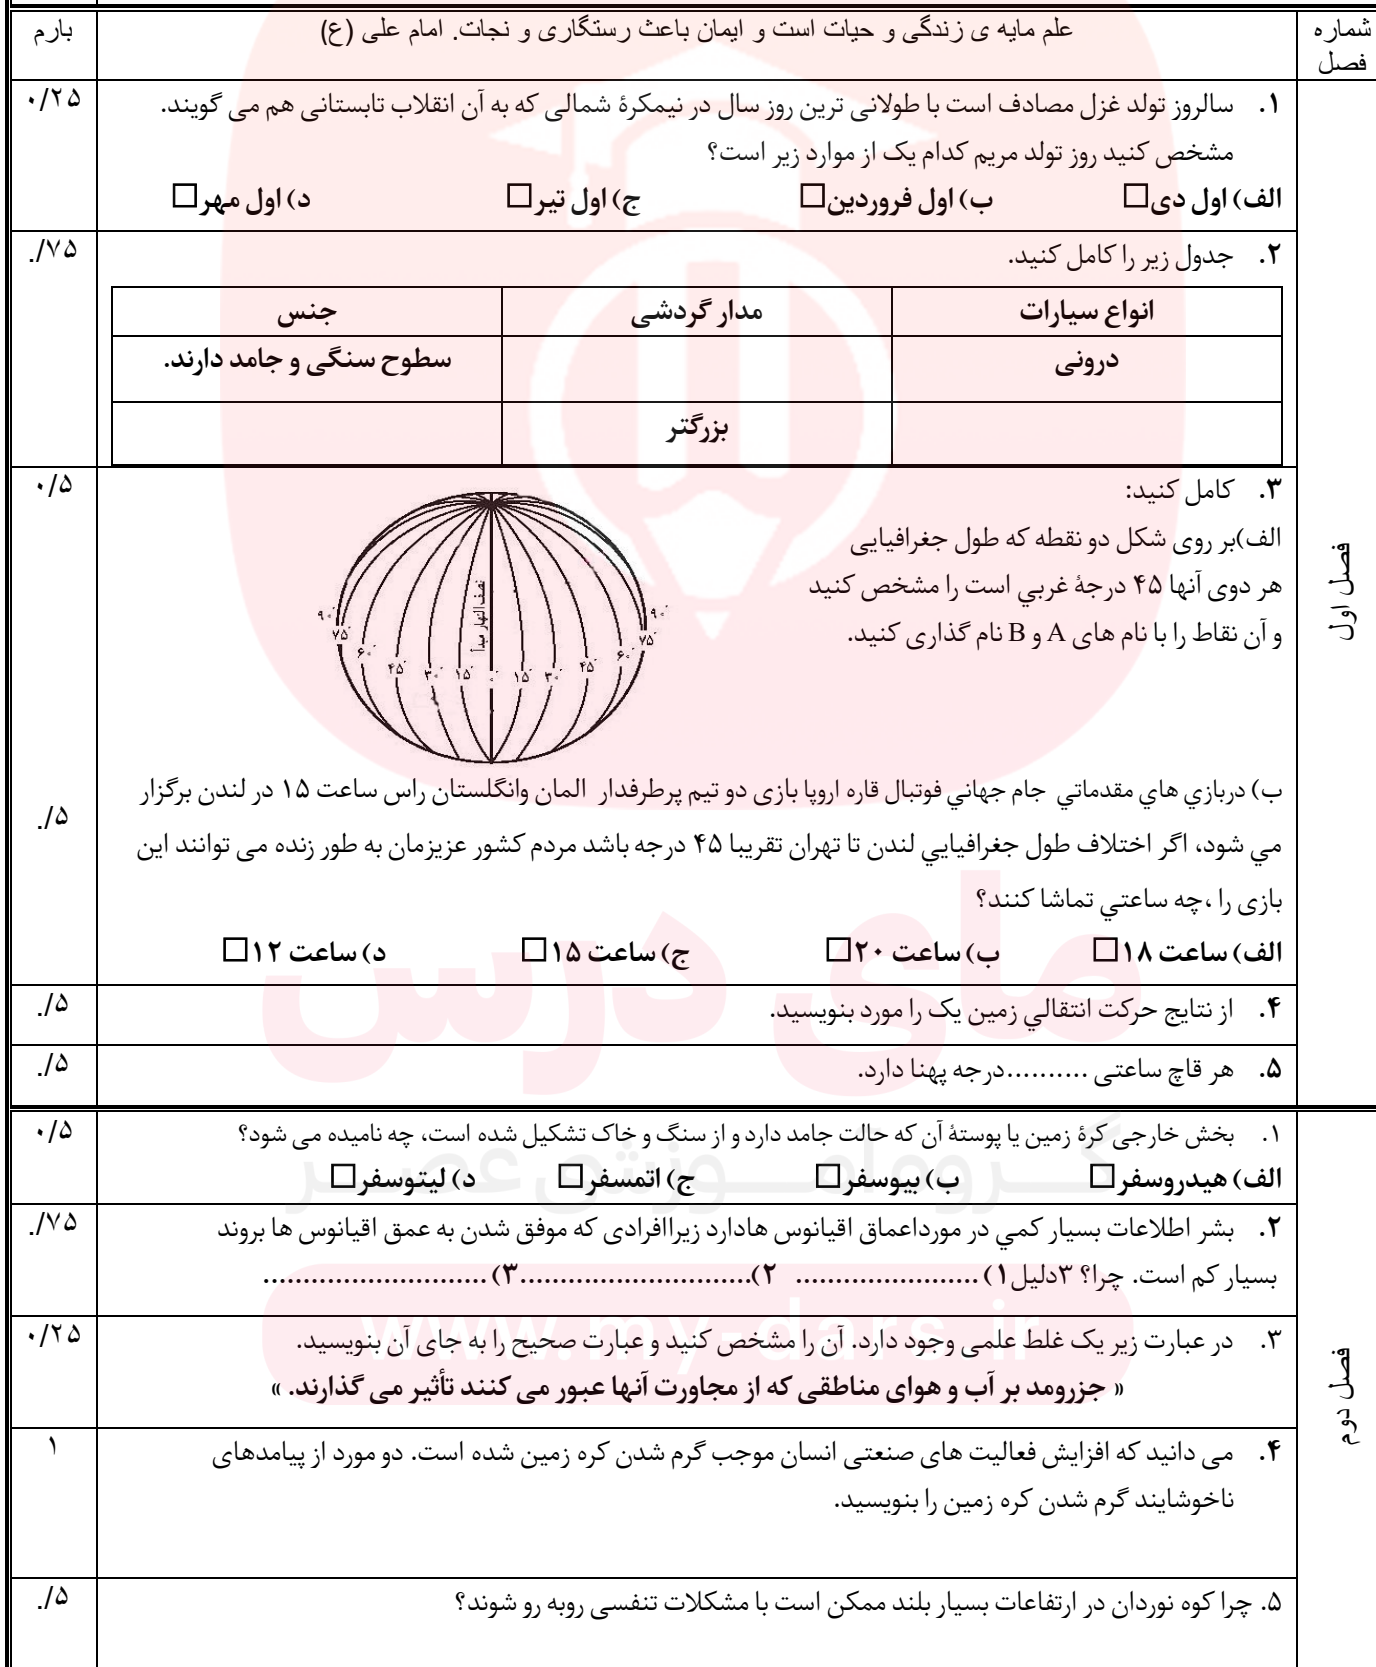 شماره فصل
علم مایه ی زندگی و حیات است و ایمان باعث رستگاری و نجات. امام علی (ع)
بارم
فصل اول
۱. سالروز تولد غزل مصادف است با طولانی ترین روز سال در نیمکرۀ شمالی که به آن انقلاب تابستانی هم می گویند.
مشخص کنید روز تولد مریم کدام یک از موارد زیر است؟
الف) اول دی□ ب) اول فروردین□ ج) اول تیر□ د) اول مهر□
۰/۲۵
۲. جدول زیر را کامل کنید.
۷۵/.
انواع سیارات مدار گردشی جنس
درونی سطوح سنگی و جامد دارند.
بزرگتر
۳. کامل کنید:
۰/۵
الف)بر روی شکل دو نقطه که طول جغرافیایی
هر دوی آنها ۴۵ درجۀ غربي است را مشخص کنید
و آن نقاط را با نام های A و B نام گذاری کنید.
نصف النهار مبدأ
۹۰ ۷۵ ۶۰ ۴۵ ۳۰ ۱۵ ۰ ۱۵ ۳۰ ۴۵ ۶۰ ۷۵ ۹۰
ب) دربازي هاي مقدماتي جام جهاني فوتبال قاره اروپا بازی دو تیم پرطرفدار المان وانگلستان راس ساعت ۱۵ در لندن برگزار
مي شود، اگر اختلاف طول جغرافیایي لندن تا تهران تقریبا ۴۵ درجه باشد مردم کشور عزیزمان به طور زنده می توانند این
بازی را ،چه ساعتي تماشا کنند؟
۵/.
الف) ساعت ۱۸□ ب) ساعت ۲۰□ ج) ساعت ۱۵□ د) ساعت ۱۲□
۴. از نتایج حرکت انتقالي زمین یک را مورد بنویسید.
۵/.
۵. هر قاچ ساعتی ..........درجه پهنا دارد.
۵/.
فصل دوم
۱. بخش خارجی کرۀ زمین یا پوستۀ آن که حالت جامد دارد و از سنگ و خاک تشکیل شده است، چه نامیده می شود؟
الف) هیدروسفر□ ب) بیوسفر□ ج) اتمسفر□ د) لیتوسفر□
۰/۵
۲. بشر اطلاعات بسیار کمي در مورداعماق اقیانوس هادارد زیراافرادی که موفق شدن به عمق اقیانوس ها بروند
بسیار کم است. چرا؟ ۳دلیل۱) ....................... ۲).............................۳) ............................
۷۵/.
۳. در عبارت زیر یک غلط علمی وجود دارد. آن را مشخص کنید و عبارت صحیح را به جای آن بنویسید.
« جزرومد بر آب و هوای مناطقی که از مجاورت آنها عبور می کنند تأثیر می گذارند. »
۰/۲۵
۴. می دانید که افزایش فعالیت های صنعتی انسان موجب گرم شدن کره زمین شده است. دو مورد از پیامدهای
ناخوشایند گرم شدن کره زمین را بنویسید.
۱
۵. چرا کوه نوردان در ارتفاعات بسیار بلند ممکن است با مشکلات تنفسی روبه رو شوند؟
۵/.
مای درس
گروه آموزشی عصر
www.my-dars.ir